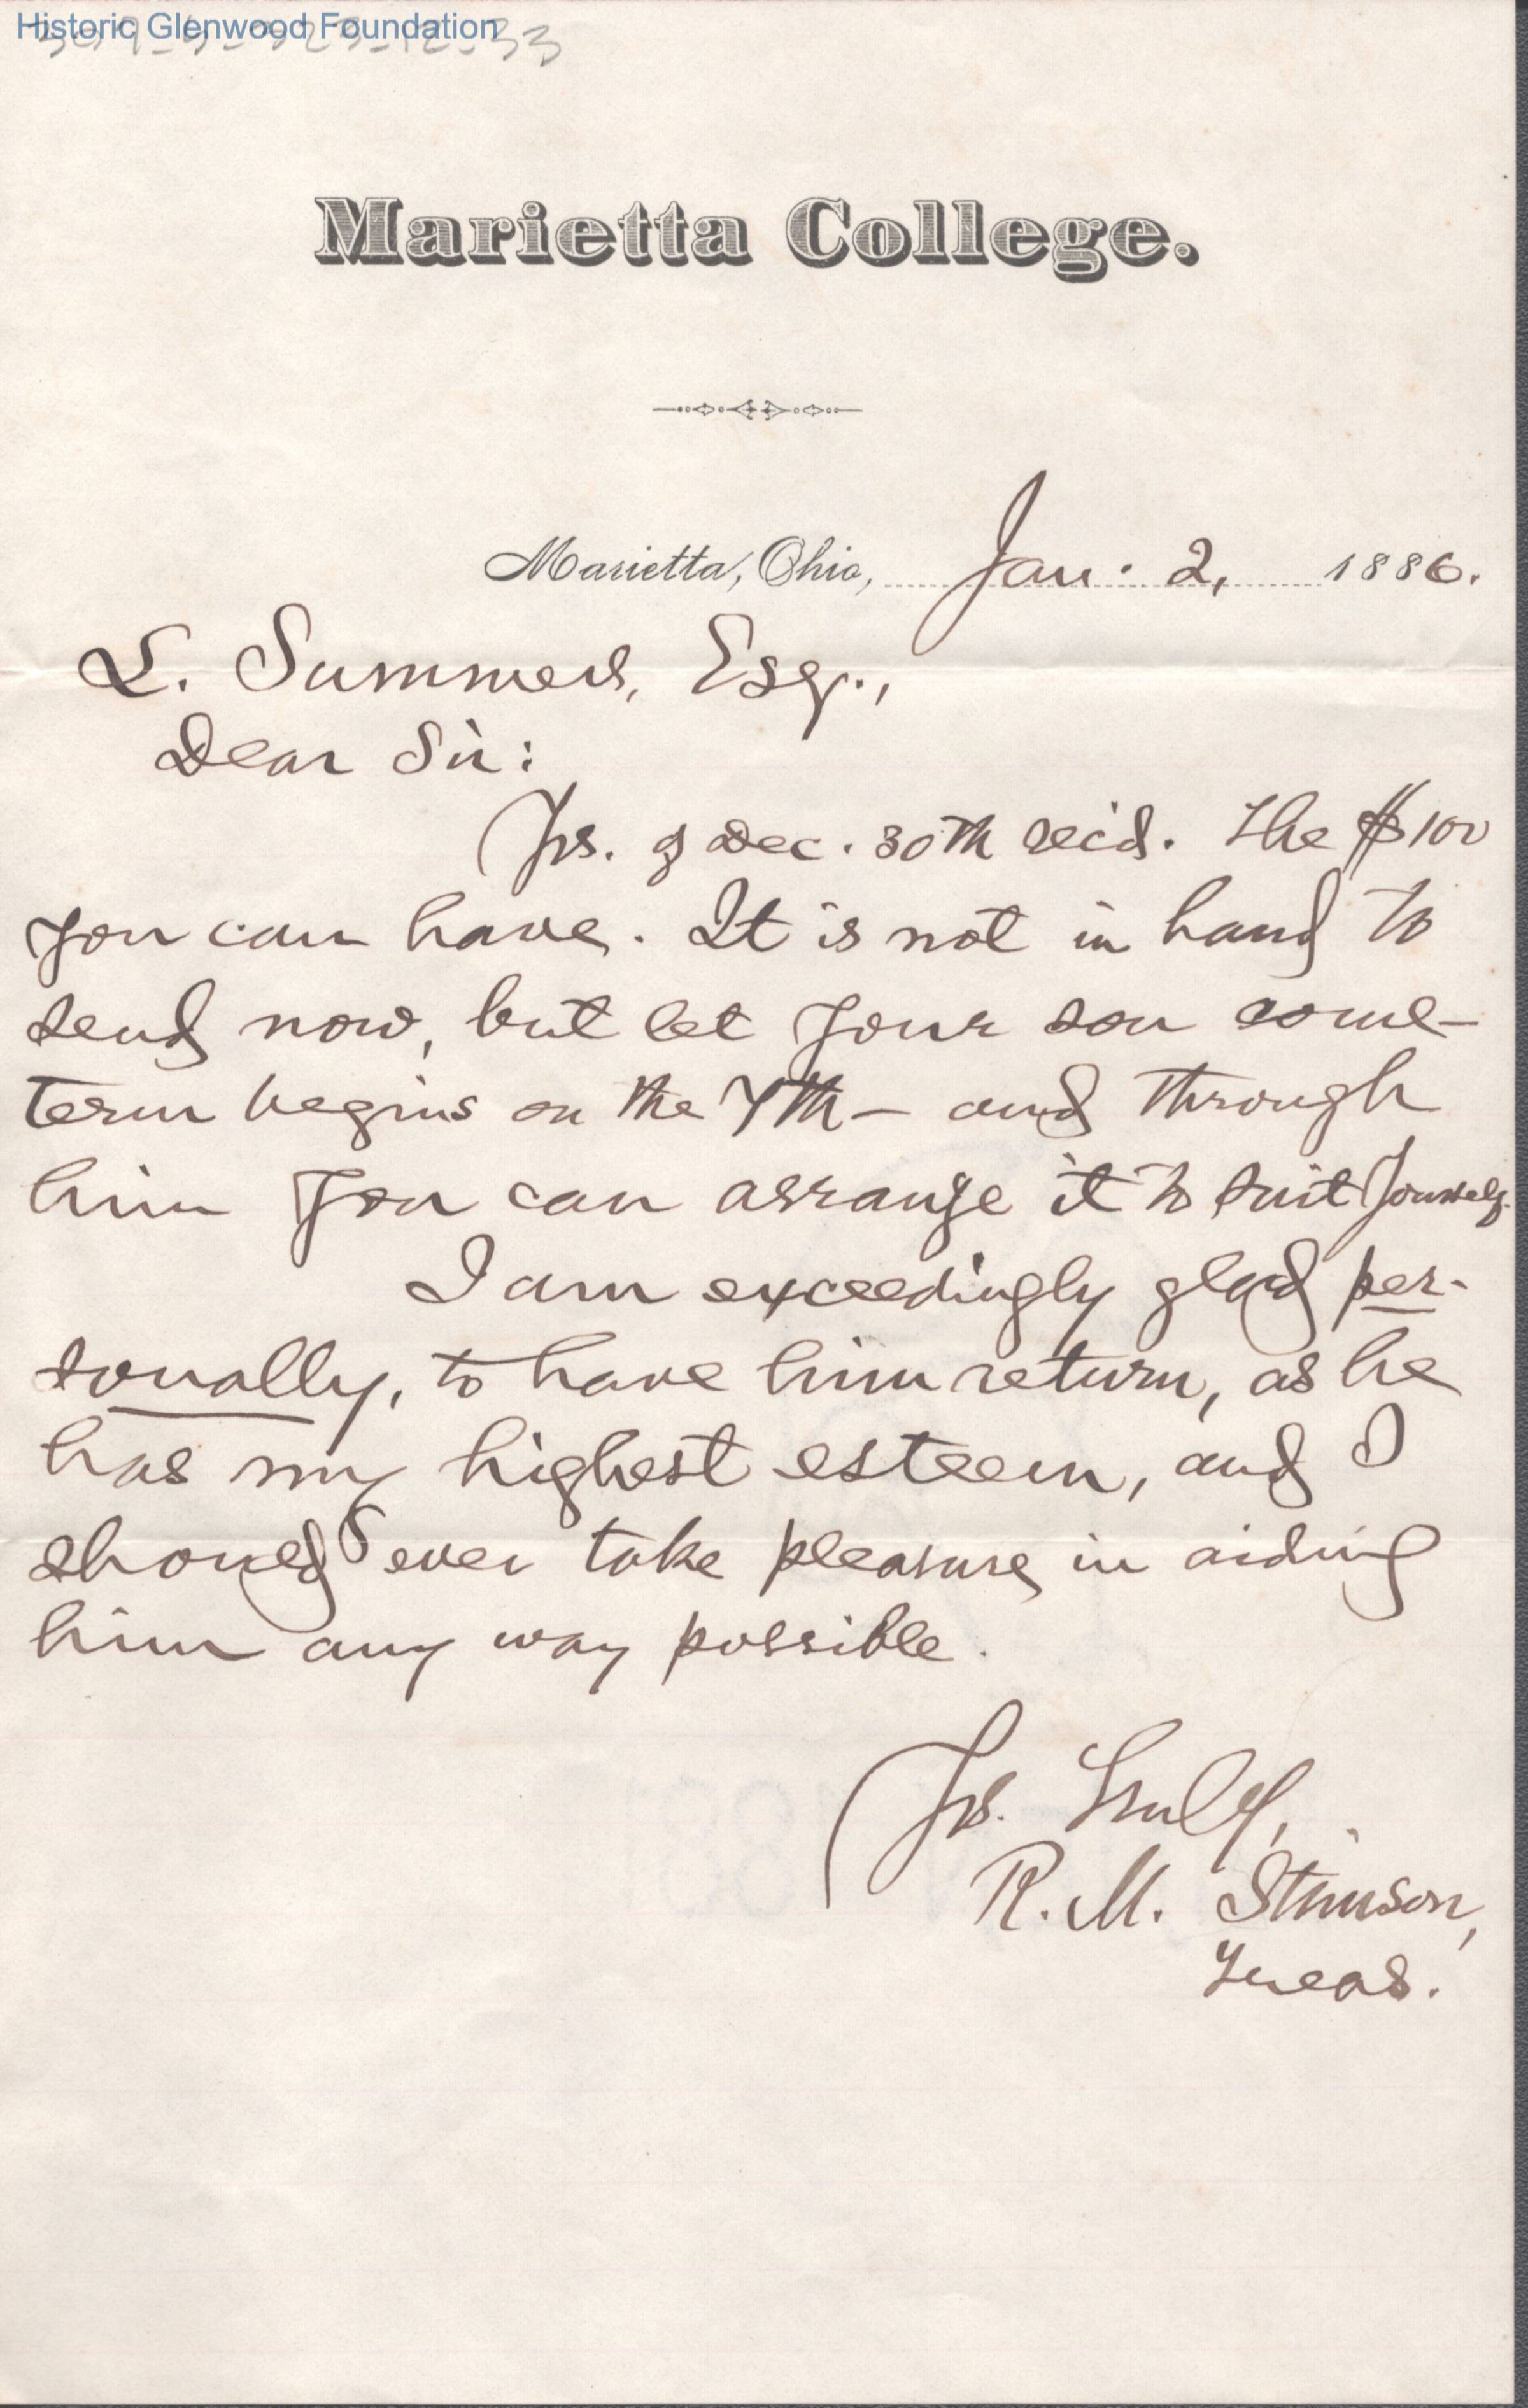 Historic Glenwood Foundation
Marietta College.
Marietta, Ohio, Jan. 2, 1886.
L. Summers, Esq.,
Dear Sir:
Yrs. of Dec. 30th rec'd. The $100
you can have. It is not in hand to
send now, but let your son come—
term begins on the 7th — and through
him you can arrange it to suit yourself.
I am exceedingly glad per-
sonally, to have him return, as he
has my highest esteem, and I
should ever take pleasure in aiding
him any way possible.
Yrs. Truly,
R. M. Stimson,
Treas.